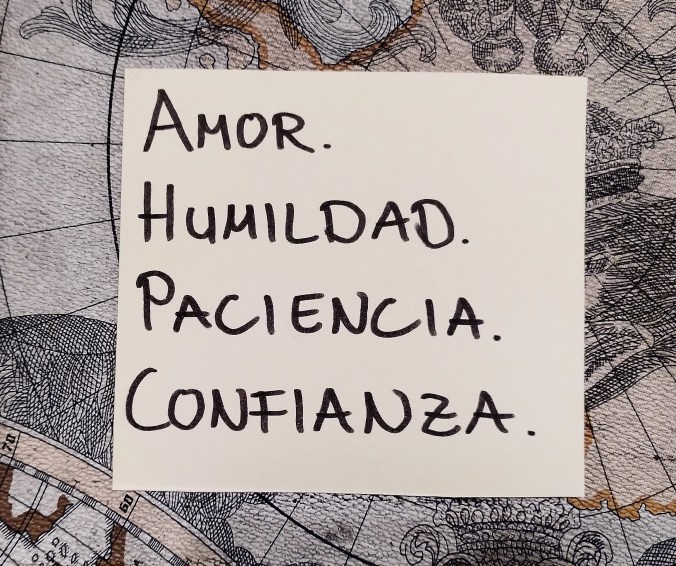 AMOR.
HUMILDAD.
PACIENCIA.
CONFIANZA.
70
60